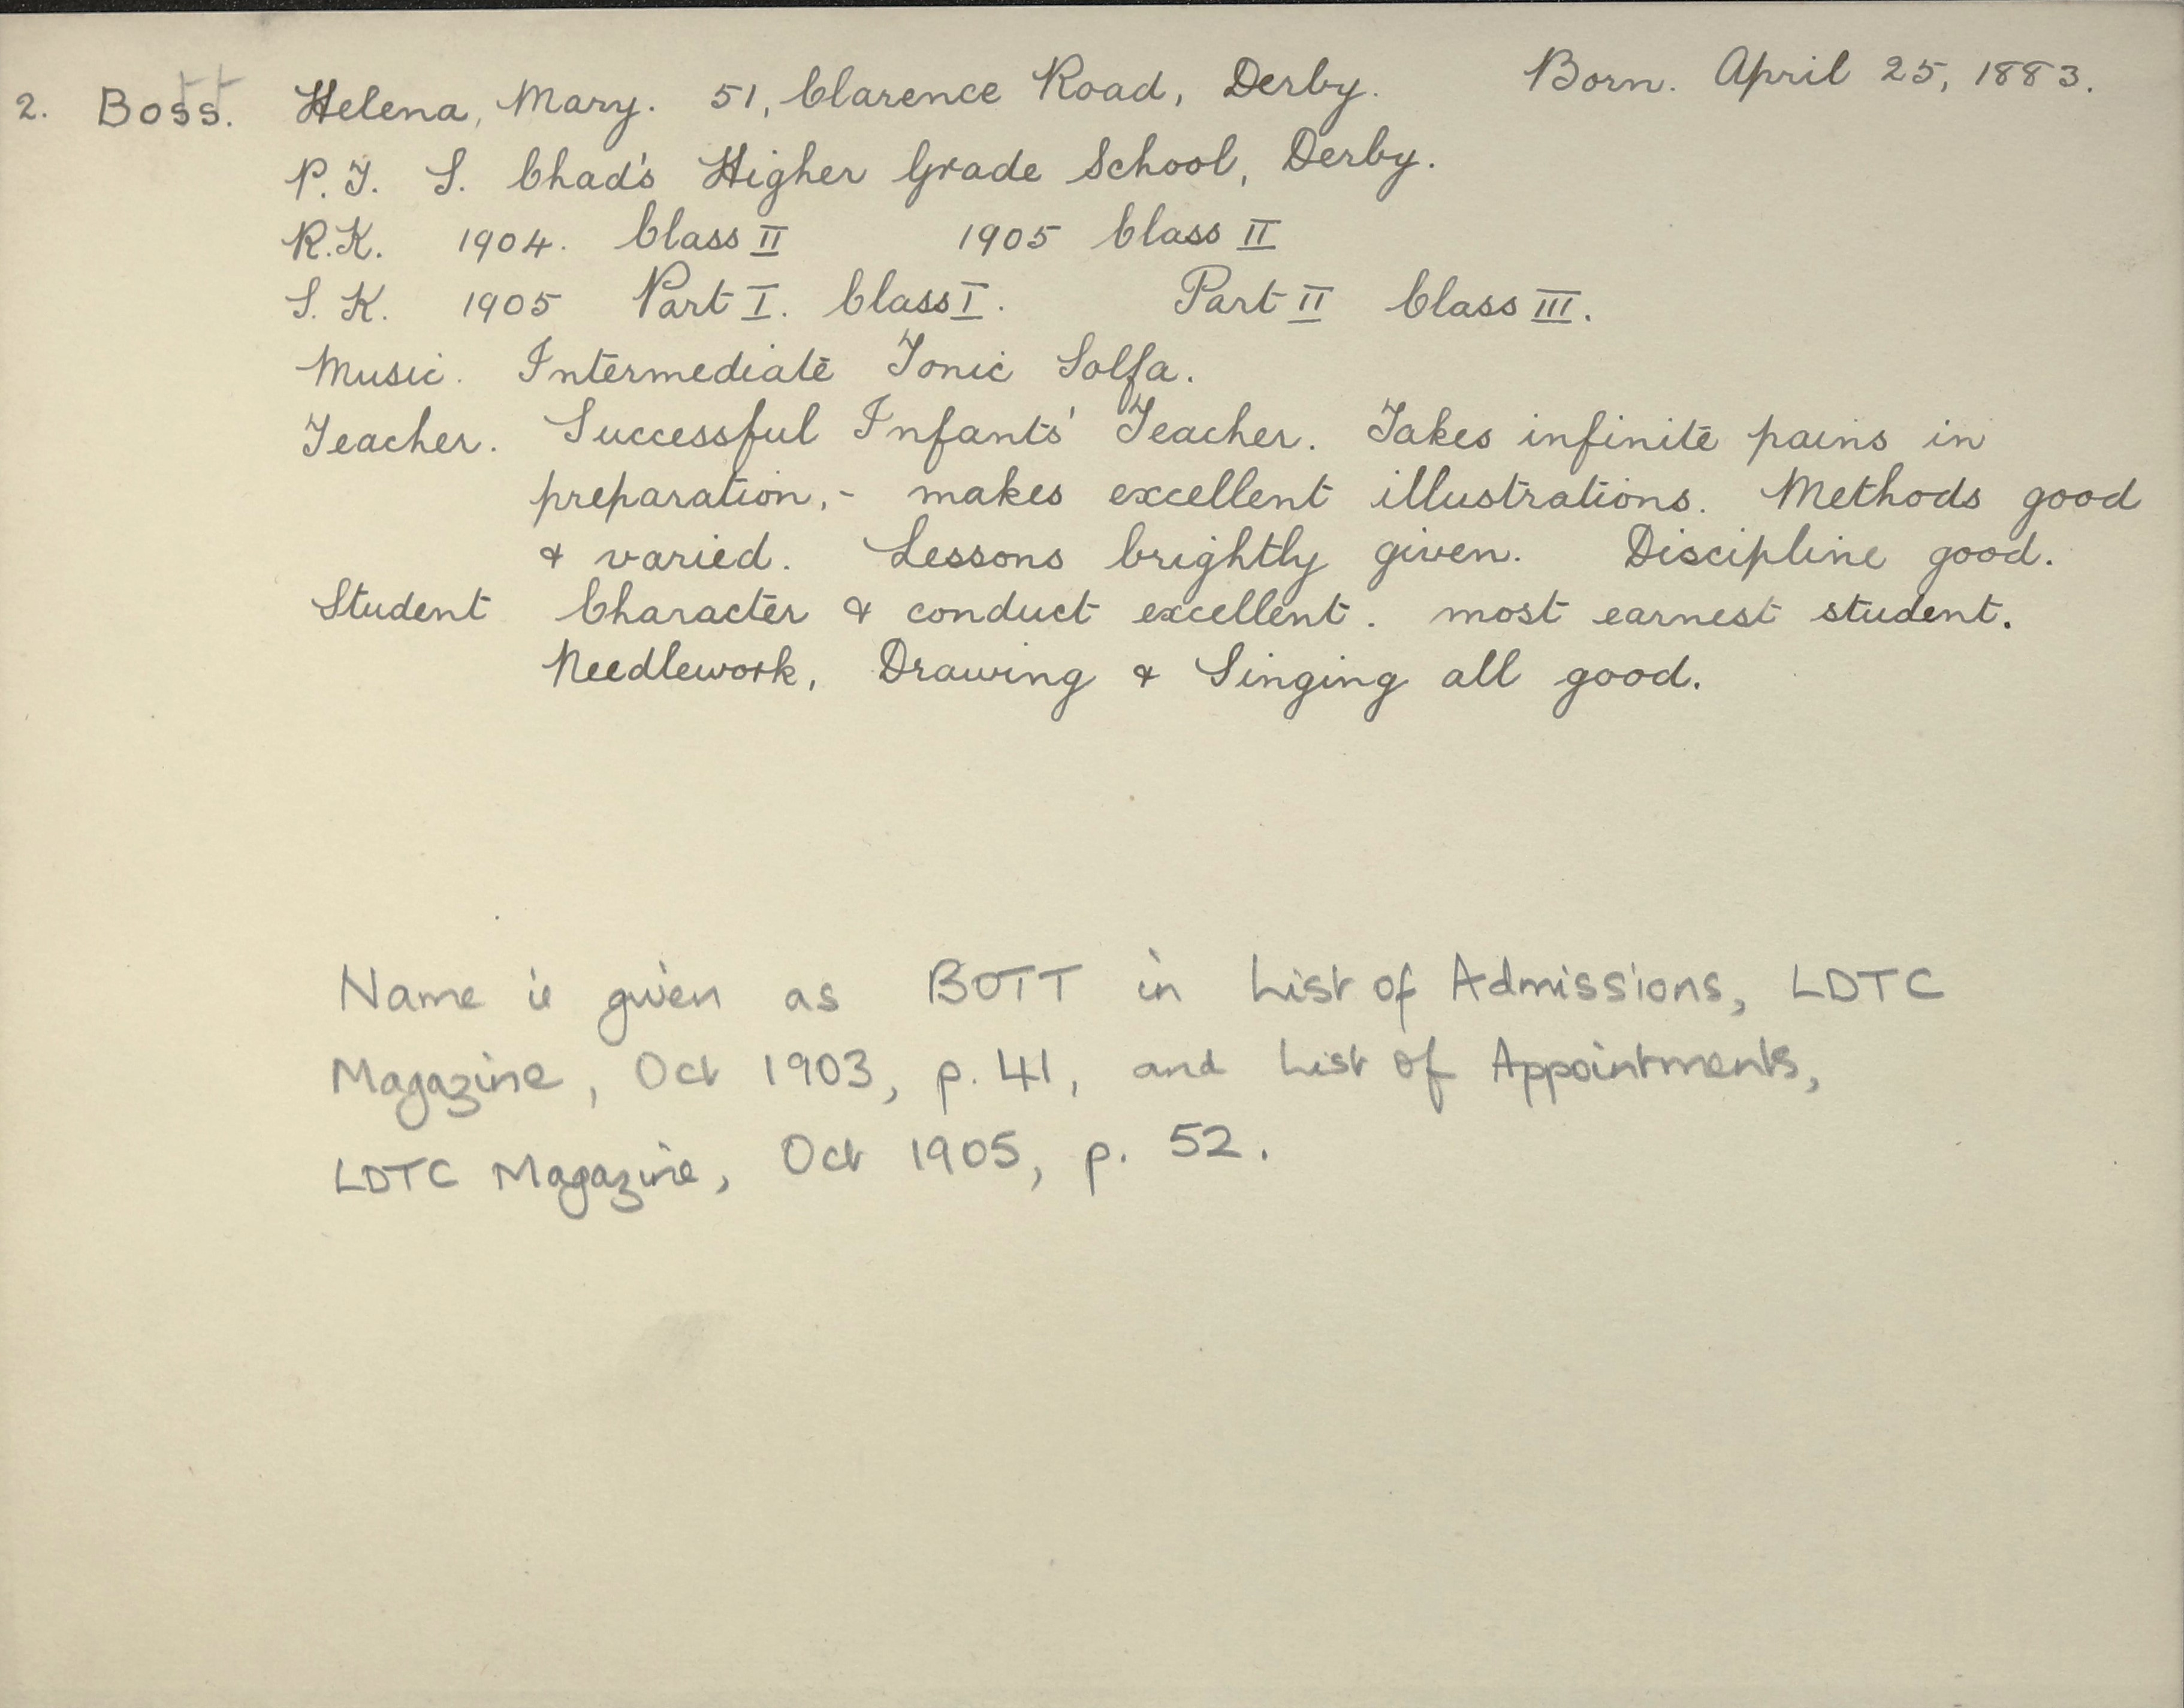 2. Boss. Helena, Mary. 51, Clarence Road, Derby. Born. April 25, 1883.
tt
P.T. S. Chad's Higher Grade School, Derby.
R.K. 1904. Class II 1905 Class II
S. K. 1905 Part I. Class I. Part II Class III.
Music. Intermediate Tonic Solfa.
Teacher. Successful Infants' Teacher. Takes infinite pains in
preparation, - makes excellent illustrations. Methods good
& varied. Lessons brightly given. Discipline good.
Student Character & conduct excellent. most earnest student.
Needlework, Drawing & Singing all good.
Name is given as BOTT in List of Admissions, LDTC
Magazine, Oct 1903, p. 41, and List of Appointments,
LDTC Magazine, Oct 1905, p. 52.